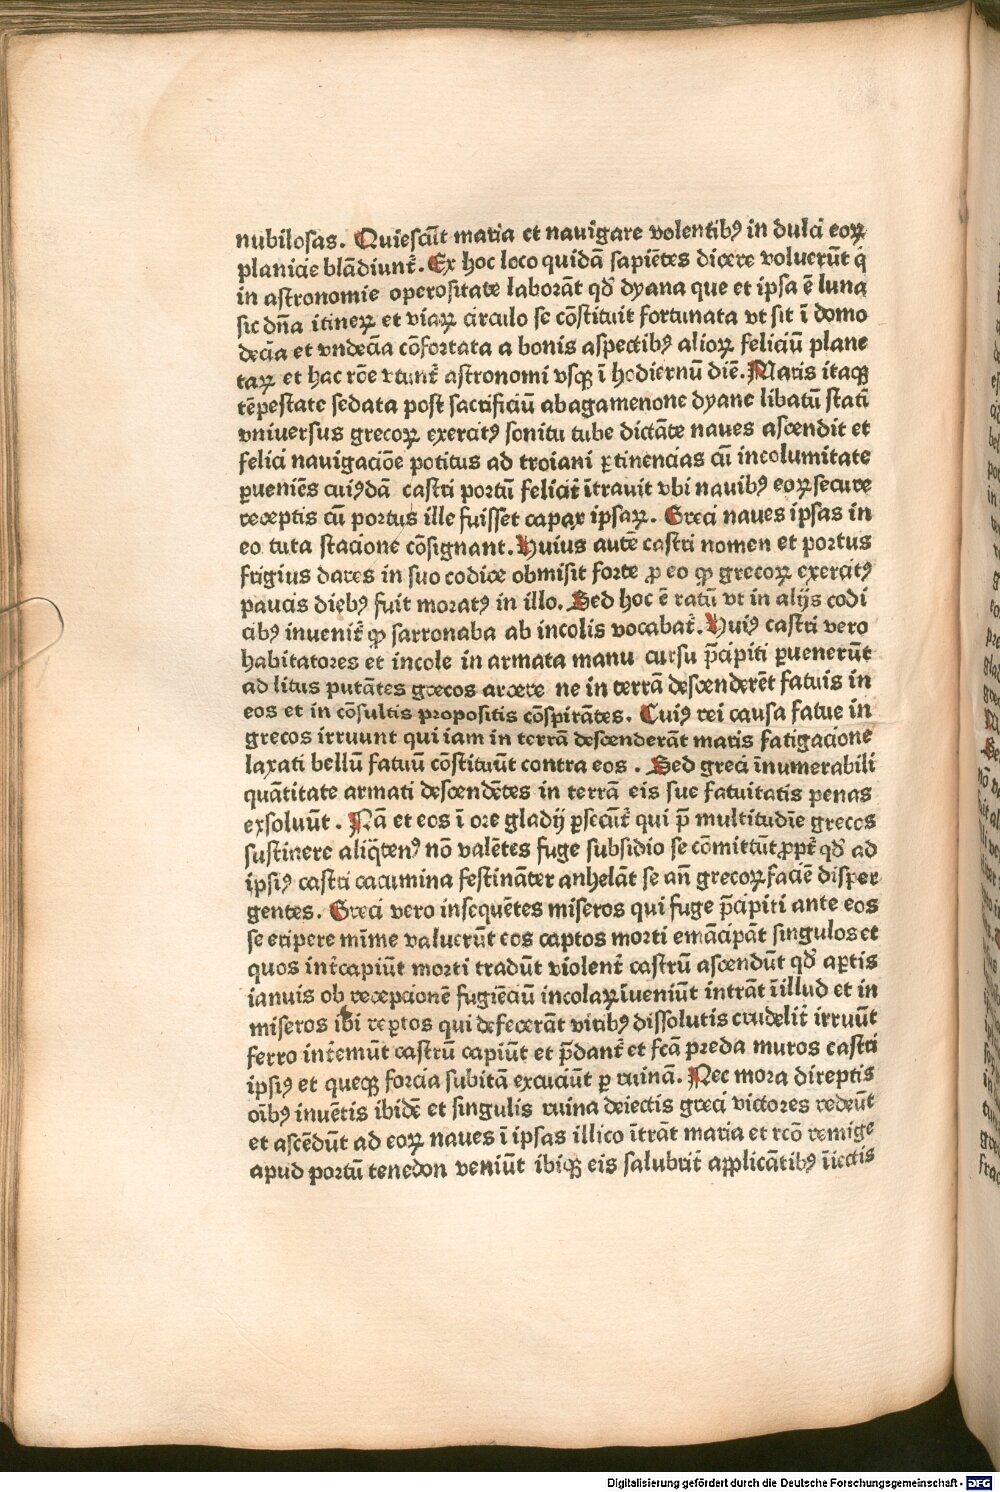 nubilosas. Quiescūt maria et nauigare volentibꝰ in dulci eoꝝ
planicie blādiunt᷑. Ex hoc loco quidā sapiētes dicere voluerūt q̇
in astronomie operositate laborāt qd̛ dyana que et ipsa ē luna
sic dn̄a itineꝝ et viaꝝ circulo se cōstituit fortunata vt sit ī domo
decīa et vndecīa cōfortata a bonis aspectibꝰ alioꝝ feliciū plane
taꝝ et hac rōe vtunt᷑ astronomi vsqꝫ ī hodiernū diē. Maris itaqꝫ
tēpestate sedata post sacrificiū abagamenone dyane libatū statī
vniuersus grecoꝝ exercitꝰ sonitu tube dictāte naues ascendit et
felici nauigaciōe potitus ad troiani ꝑtinencias cū incolumitate
ꝑueniēs cuiꝰdā castri portū felicit᷑ ītrauit vbi nauibꝰ eoꝝ secure
receptis cū portus ille fuisset capax ipsaꝝ. Greci naues ipsas in
eo tuta stacione cōsignant. Huius autē castri nomen et portus
frigius dares in suo codice obmisit forte ꝓ eo ꝙ grecoꝝ exercitꝰ
paucis diebꝰ fuit moratꝰ in illo. Sed hoc ē ratū vt in alijs codi
cibꝰ inuenit᷑ ꝙ sarronaba ab incolis vocabat᷑. Huiꝰ castri vero
habitatores et incole in armata manu cursu p̄cipiti ꝑuenerūt
ad litus putātes grecos arcere ne in terrā descenderēt fatuis in
eos et in cōsultis propositis cōspirātes. Cuiꝰ rei causa fatue in
grecos irruunt qui iam in terrā descenderāt maris fatigacione
laxati bellū fatuū cōstituūt contra eos . Sed greci īnumerabili
quātitate armati descendētes in terrā eis sue fatuitatis penas
exsoluūt . Nā et eos ī ore gladij ꝑsecūt᷑ qui p̄ multitudīe grecos
sustinere aliq̄tenꝰ nō valētes fuge subsidio se cōmittūt ꝓpt᷑ qd̛ ad
ipsiꝰ castri cacumina festināter anhelāt se an̄ grecoꝝ faciē disper
gentes. Greci vero insequētes miseros qui fuge p̄cipiti ante eos
se eripere mīme valuerūt eos captos morti emācipāt singulos et
quos int᷑capiūt morti tradūt violent᷑ castrū ascendūt qd̛ aꝑtis
ianuis ob recepcionē fugiēciū incolaꝝ īueniūt intrāt īillud et in
miseros ibi reꝑtos qui defecerāt viribꝰ dissolutis crudelit᷑ irruūt
ferro int᷑emūt castrū capiūt et p̄dant᷑ et fcā preda muros castri
ipsiꝰ et queqꝫ forcia subitā excuciūt ꝑ ruinā. Nec mora direptis
oībꝰ inuētis ibidē et singulis ruina deiectis greci victores redeūt
et ascēdūt ad eoꝝ naues ī ipsas illico ītrāt maria et rcō remige
apud portū tenedon veniūt ibiqꝫ eis salubrit᷑ applicātibꝰ īiectis
Digitalisierung gefördert durch die Deutsche Forschungsgemeinschaft - DFG